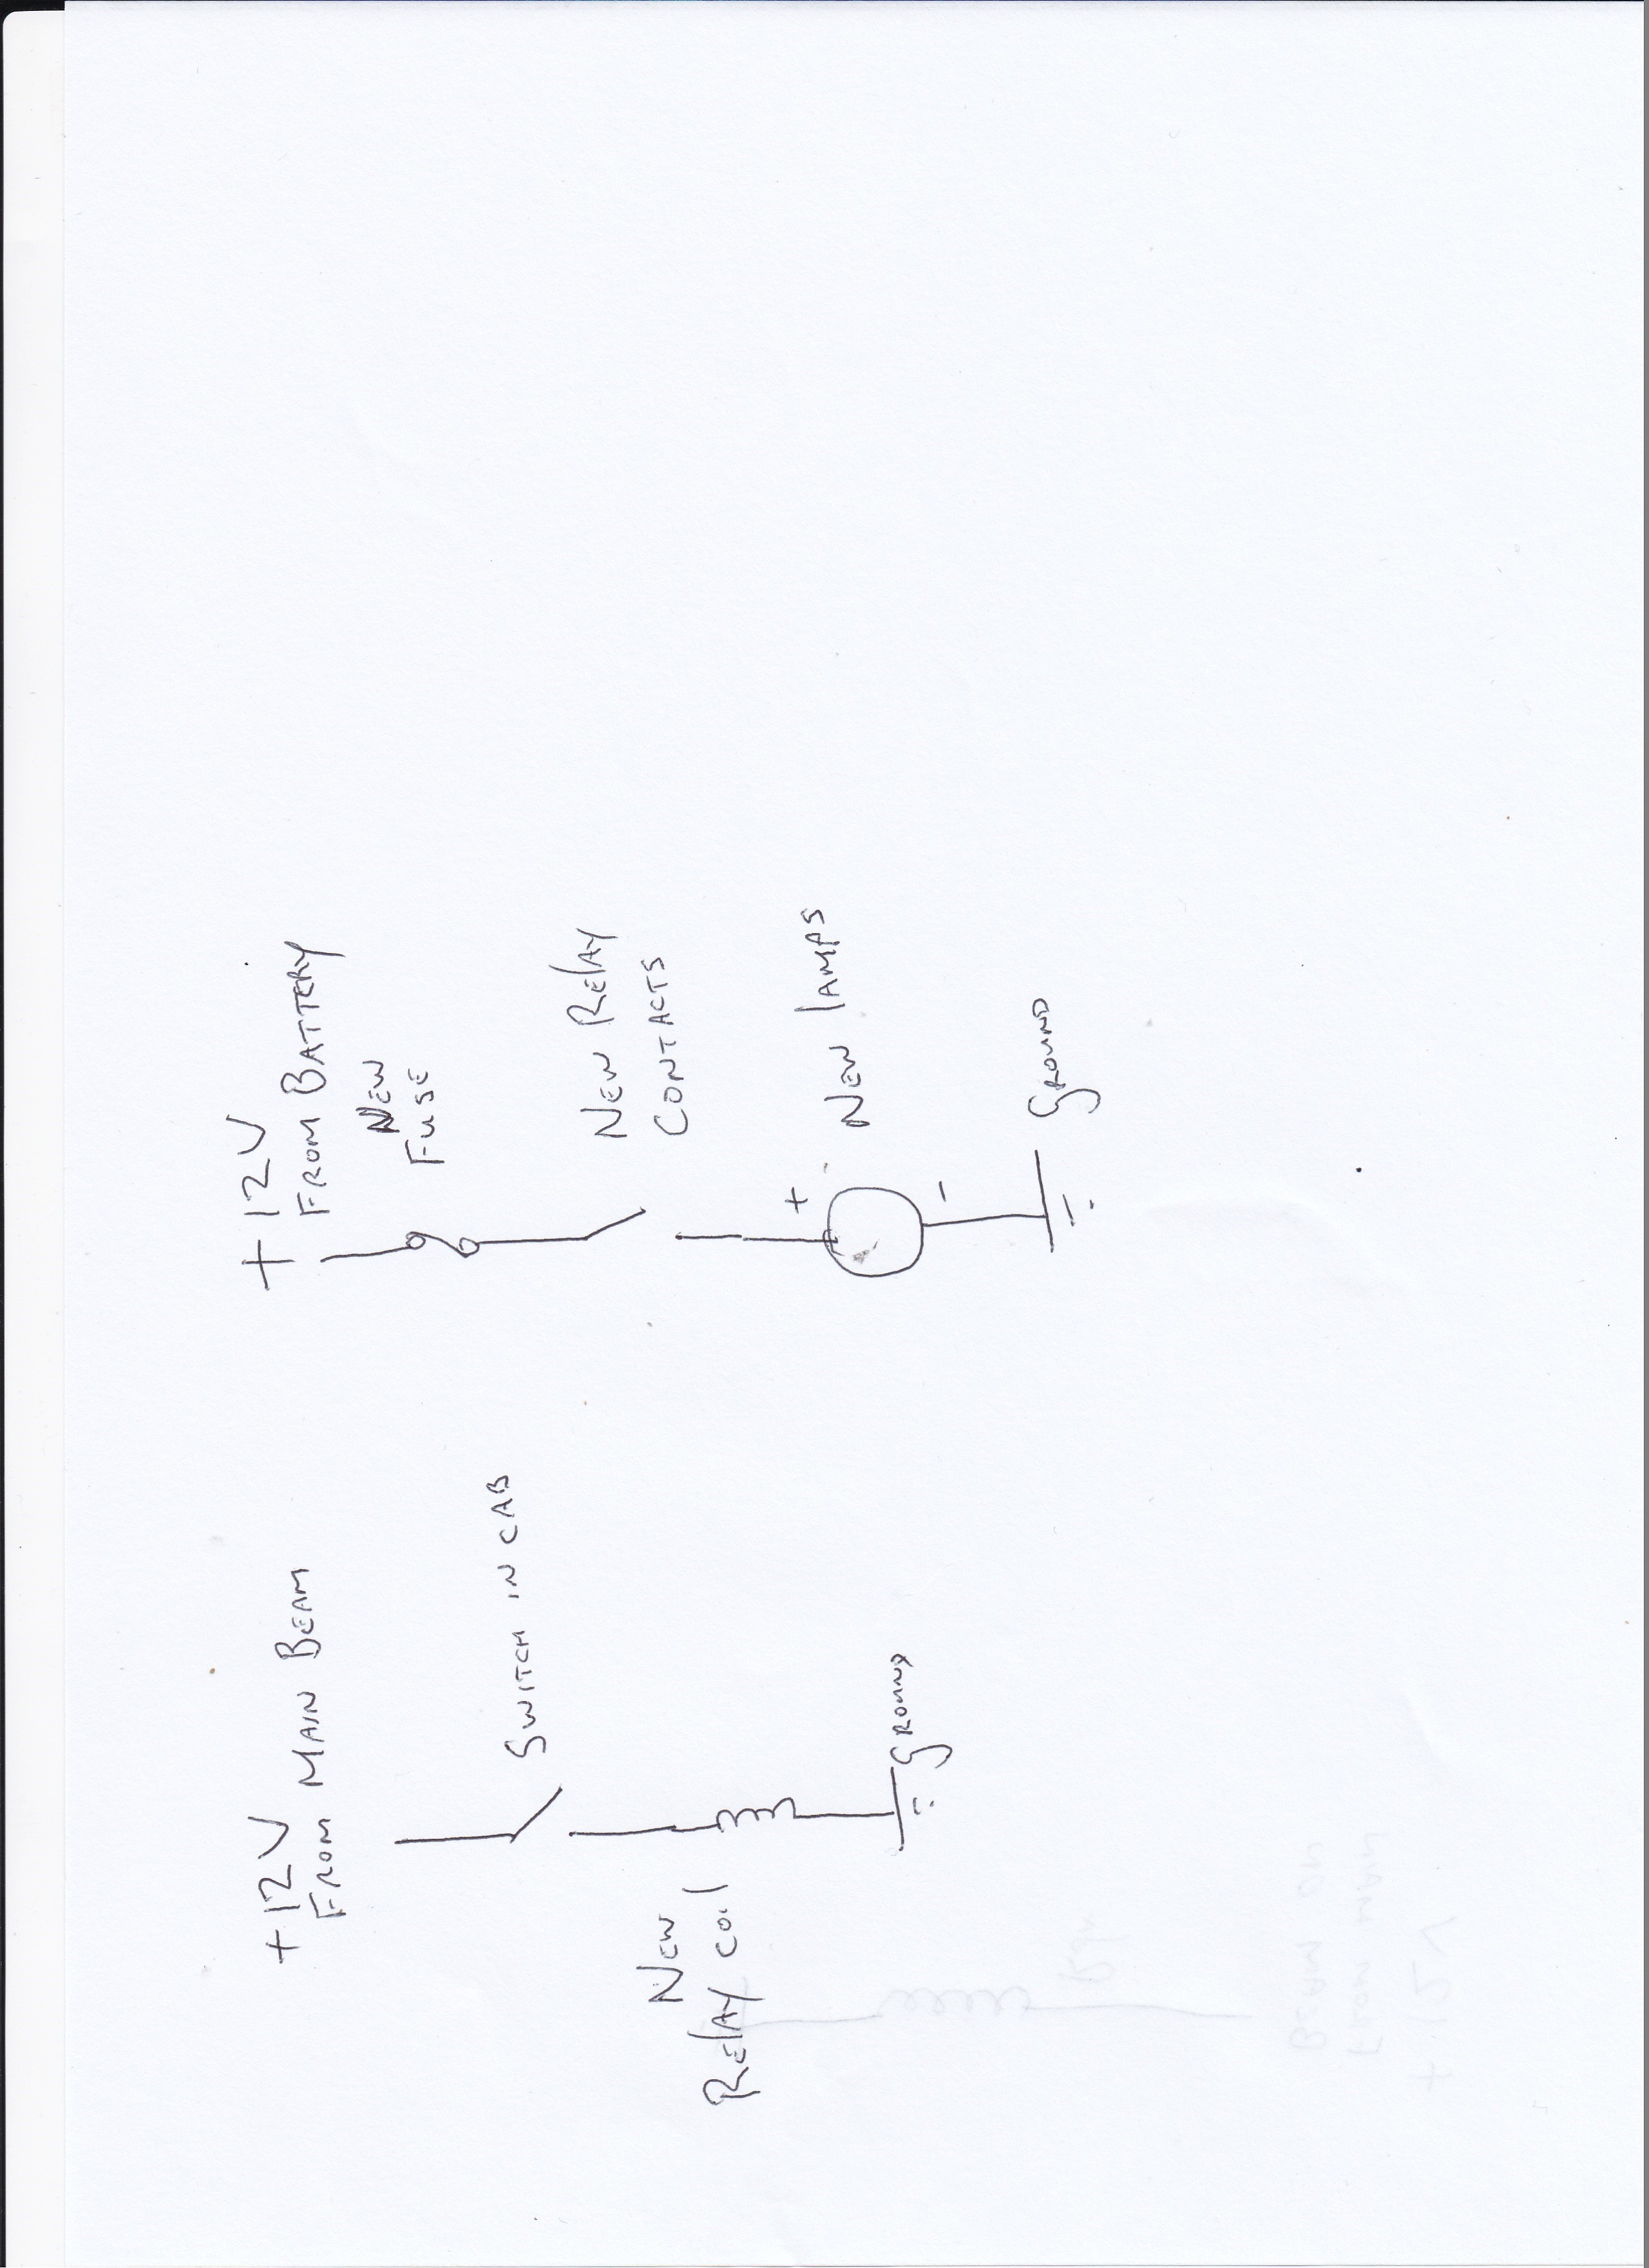 +12V
FROM MAIN BEAM
SWITCH IN CAB
NEW
RELAY COIL
GROUND
+12V
FROM BATTERY
NEW
FUSE
NEW RELAY
CONTACTS
+
NEW LAMPS
-
GROUND
+12V
FROM MAIN
BEAM ON